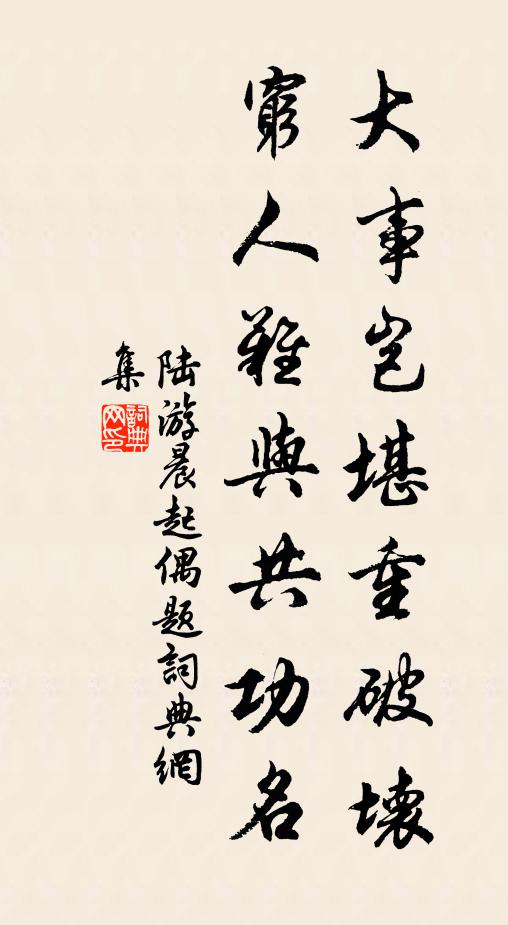 大事豈堪重破壞
窮人難與共功名
陸游晨起偶題詞典網
集
詞典
网印